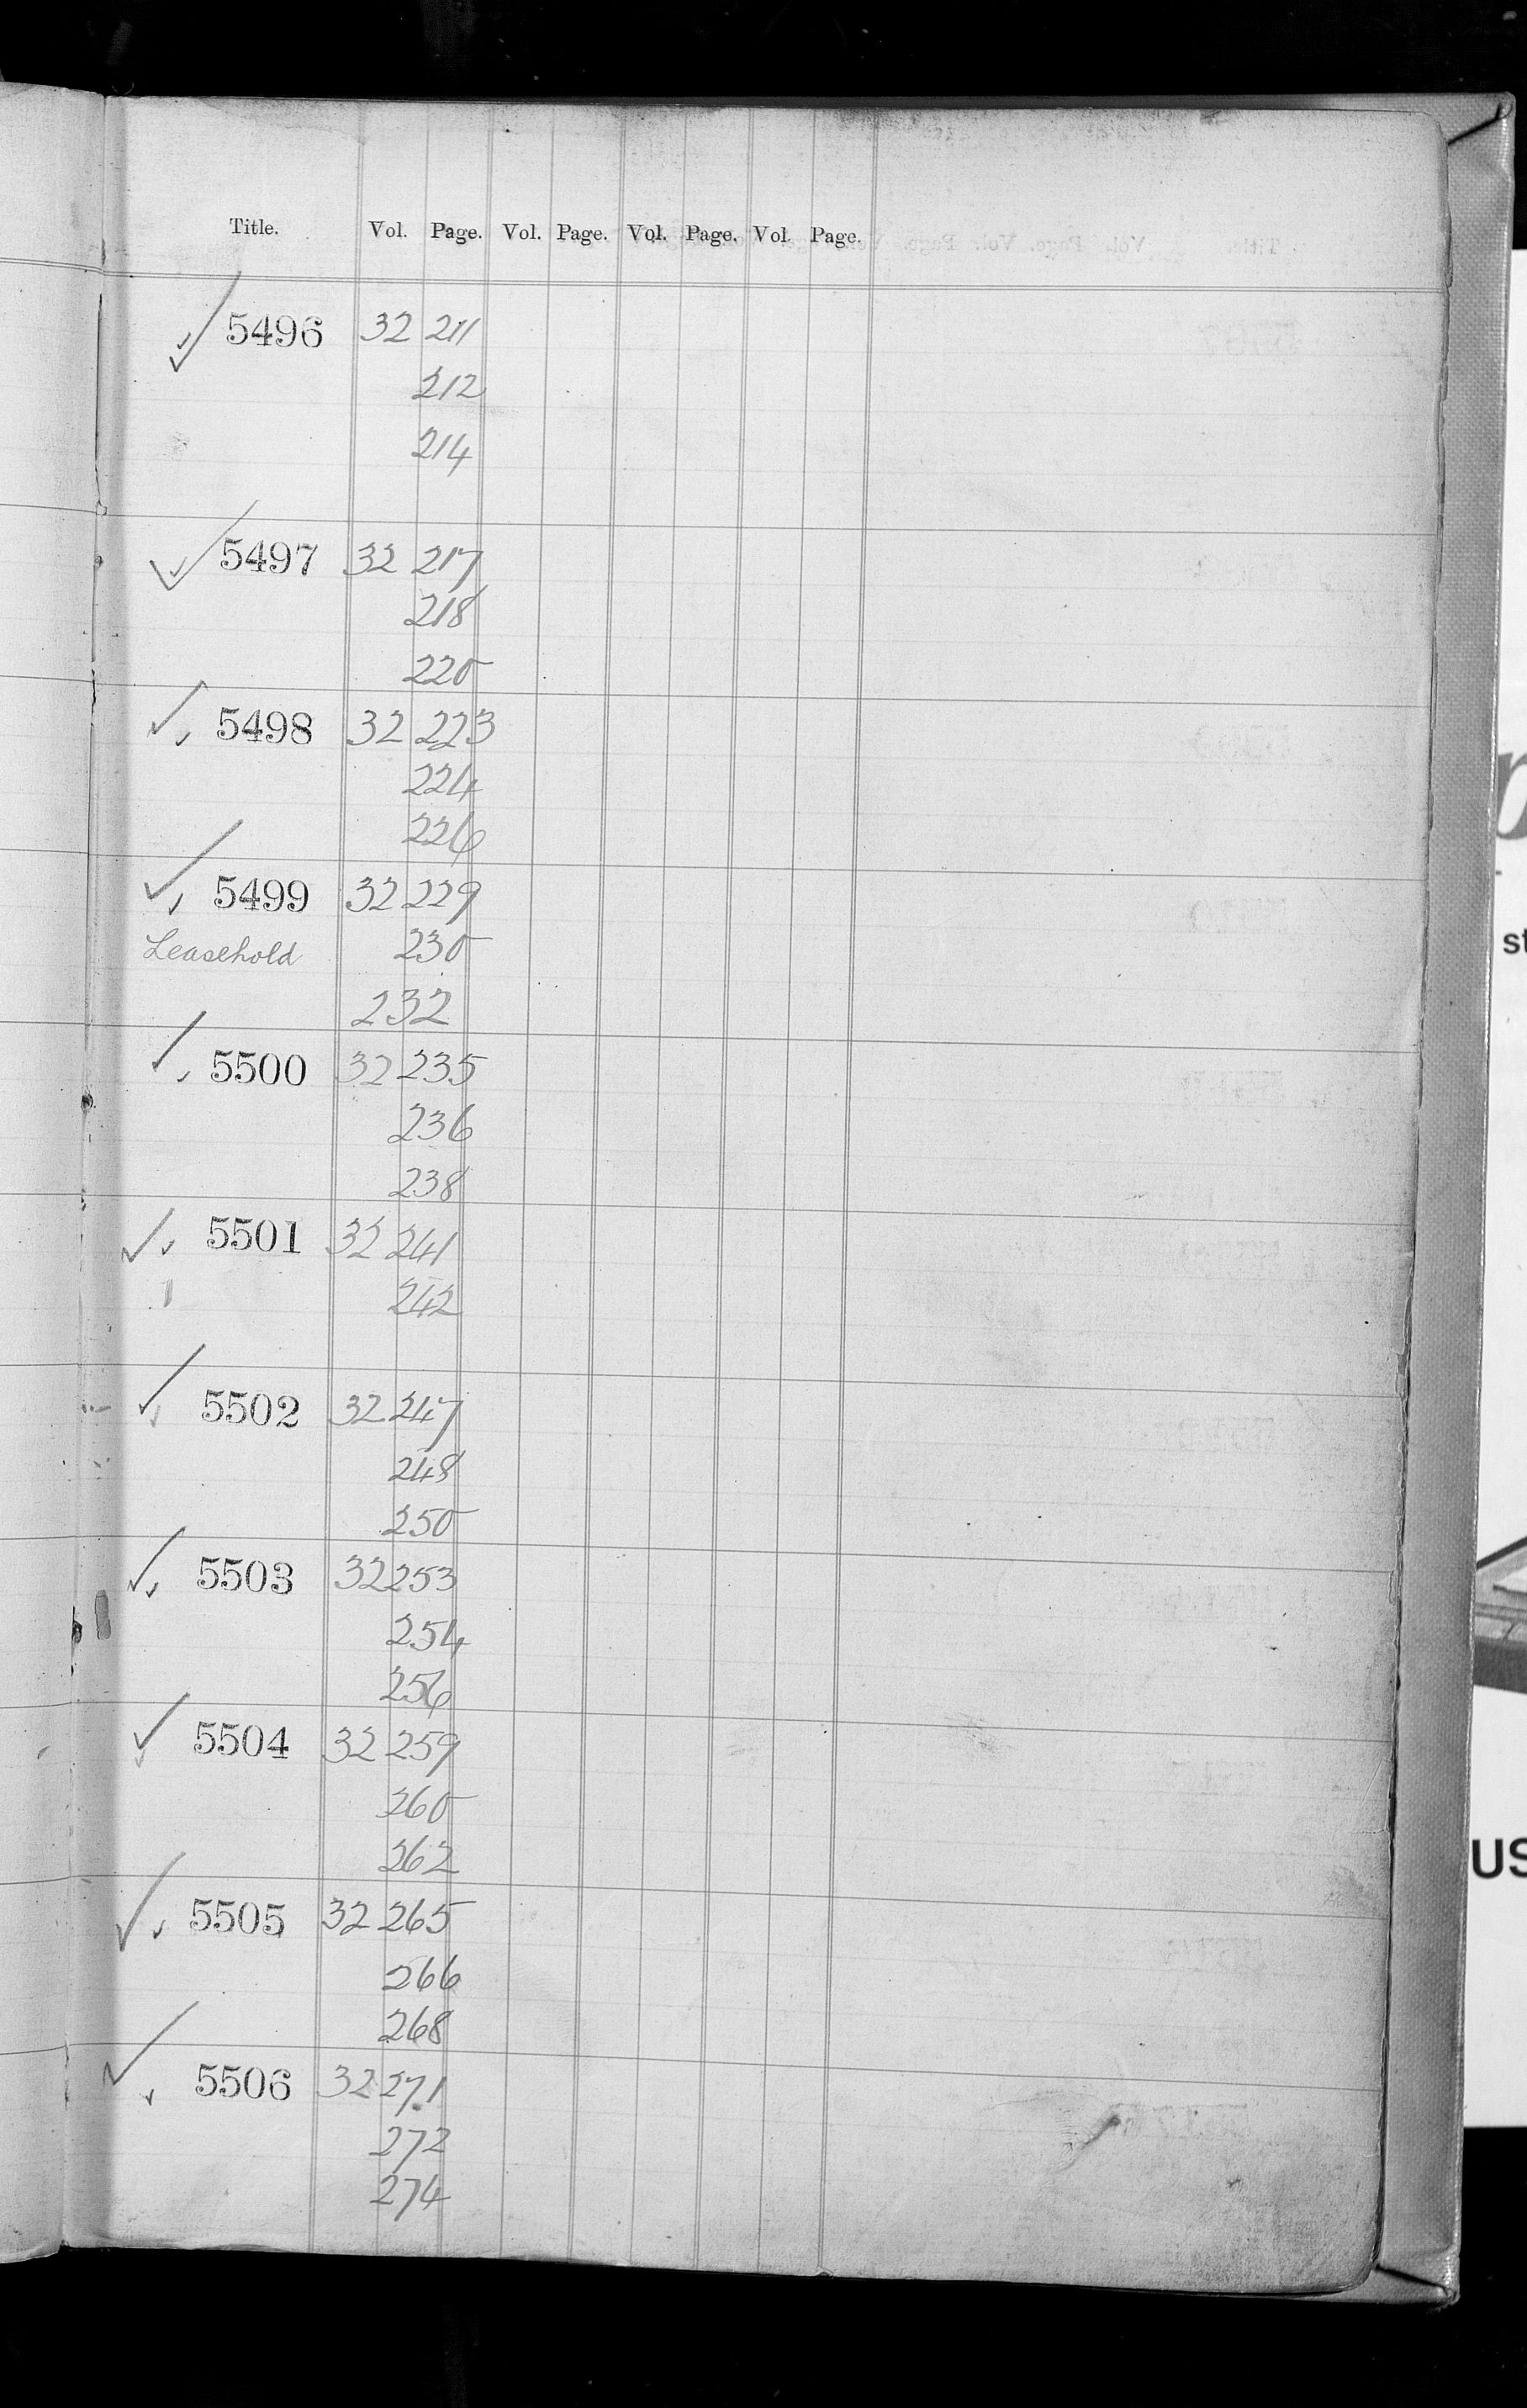 Title. Vol. Page. Vol. Page. Vol. Page. Vol. Page.
✓ 5496 32 211
212
214
✓ 5497 32 217
218
220
✓ 5498 32 223
224
226
✓ 5499 32 229
Leasehold 230
232
✓ 5500 32 235
236
238
✓ 5501 32 241
242
✓ 5502 32 247
248
250
✓ 5503 32 253
254
256
✓ 5504 32 259
260
262
✓ 5505 32 265
266
268
✓ 5506 32 271
272
274